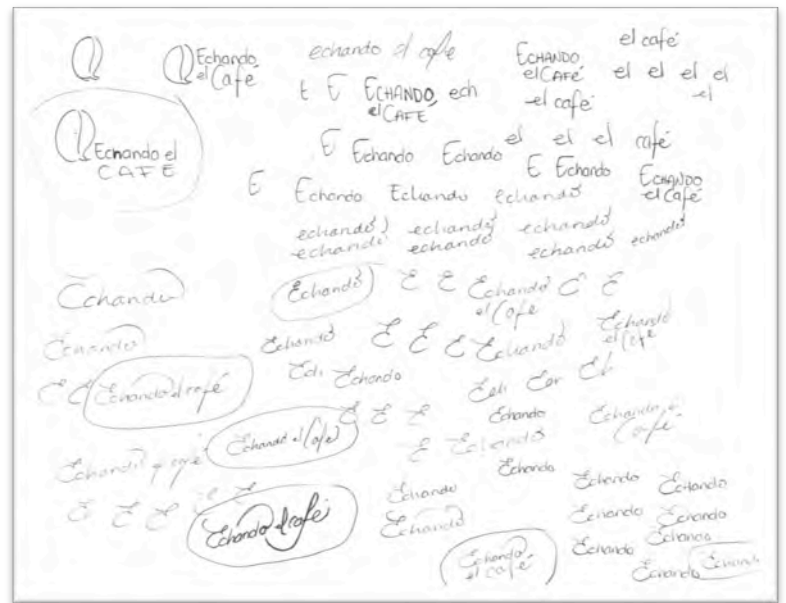 Echando
el Café
echando el cafe
ECHANDO
el CAFÉ
-el café
el café
el el el el
el
E E ECHANDO, ech
el CAFE
Echando el
CAFE
E Echando Echando el el el café
E Echando
ECHANDO
el Café
E Echando Echando echando
echando echando echando
echando echando echando echando
Echando
Echando E E Echando E E
el Cafe
Echando
Echando E E E Echando
Echando
el Cafe
E E Echando el café
Ech Echando
Ech Eh
Echando el Café
E E E
Echando
Echando
Café
E Echando
Echando
Echando el café
E E E E E
Echando el café
Echando
Echando
Echando
el café
Echando Echando
Echando Echando
Echando Echando
Echando Echando